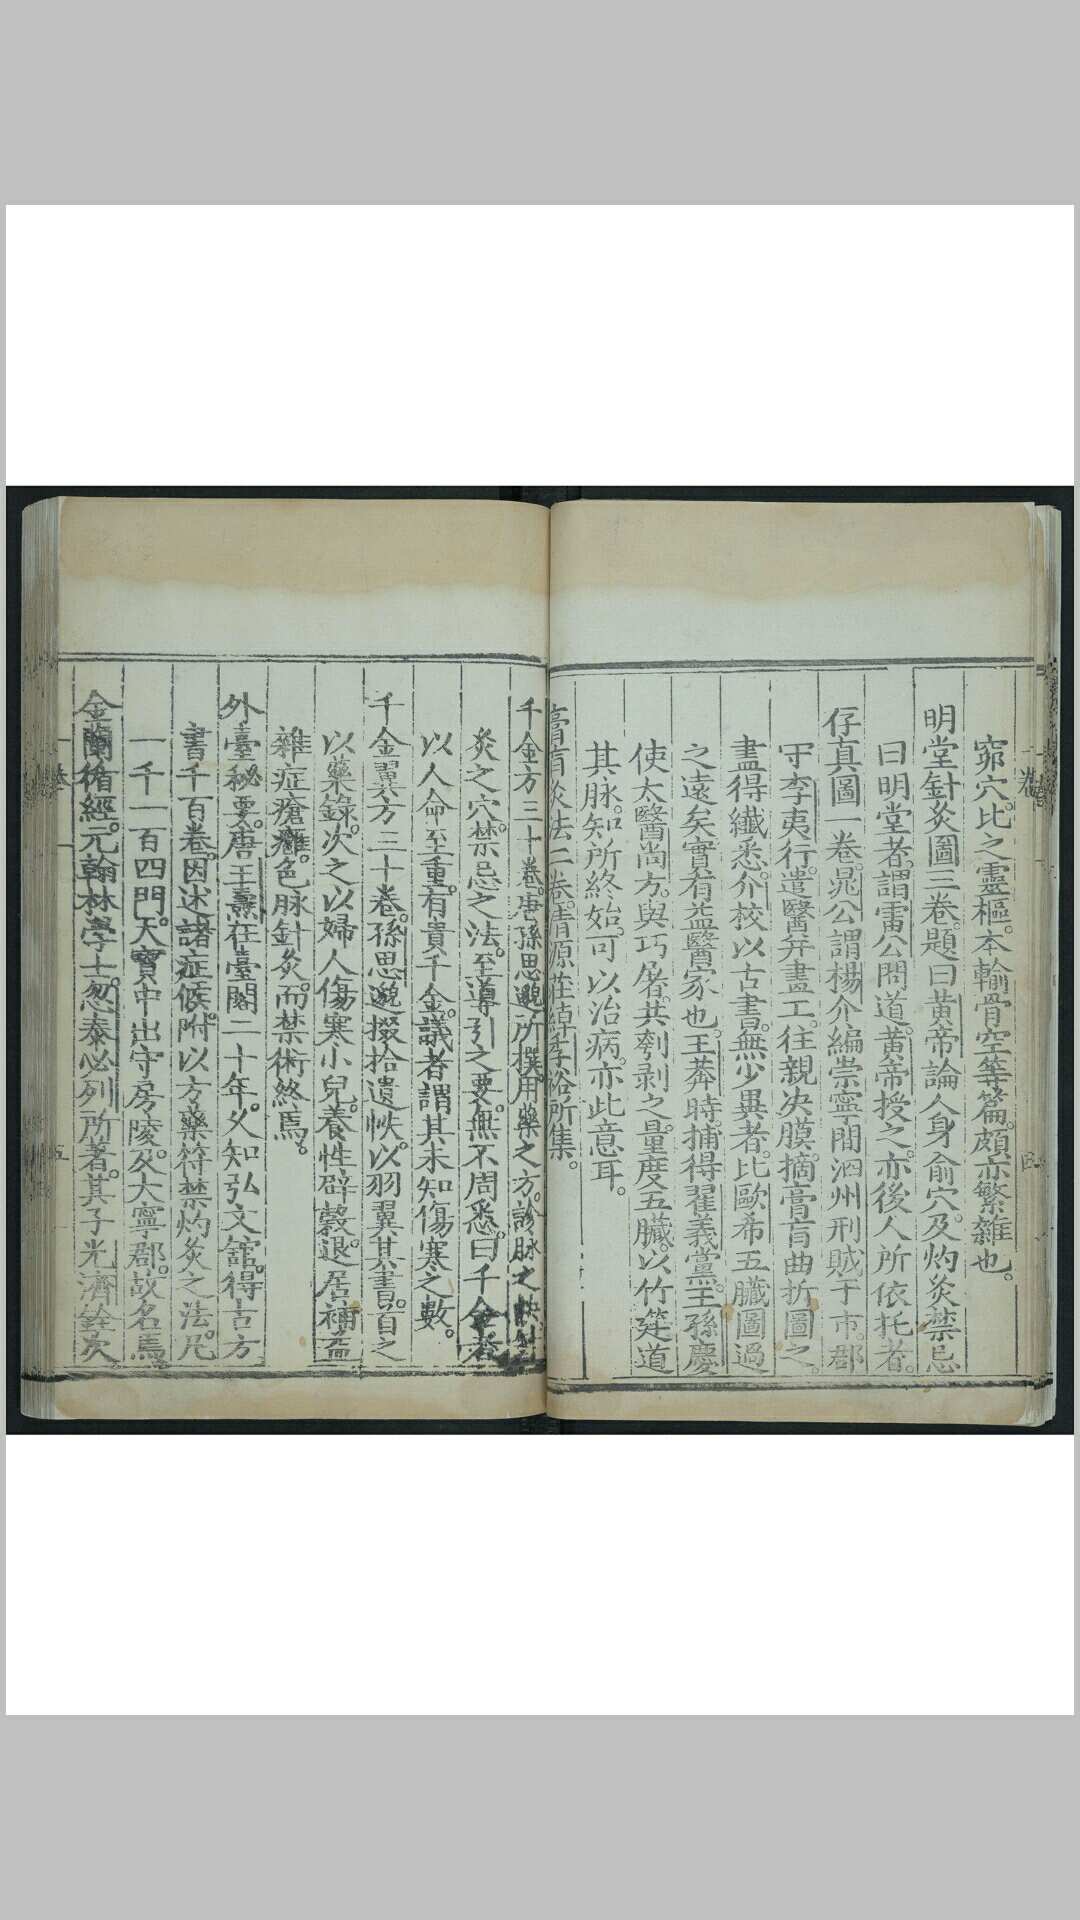 窌穴。比之靈樞。本輸骨空等篇。頗亦繁雜也。
明堂針灸圖三卷。題曰黃帝論人身俞穴。及灼灸禁忌
曰明堂者。謂雷公問道。黃帝授之。亦後人所依托者。
存真圖一卷。晁公謂楊介編。崇寧間泗州刑賊于市。郡
守李夷行。遣醫并畫工。往親决膜。摘膏肓曲折圖之。
盡得纖悉。介校以古書。無少異者。比歐希五臟圖過
之遠矣。實有益醫家也。王莽時。捕得翟義黨。王孫慶
使太醫尚方。與巧屠。共刳剥之。量度五臟。以竹筳道
其脉。知所終始。可以治病。亦此意耳。
膏肓灸法二卷。清源莊綽季裕所集。
千金方三十卷。唐孫思邈所撰。用藥之方。診脉之訣。針
灸之穴。禁忌之法。至導引之要。無不周悉。曰千金者
以人命至重。有貴千金。議者謂其未知傷寒之數。
千金翼方三十卷。孫思邈掇拾遺帙。以羽翼其書。首之
以藥錄。次之以婦人傷寒小兒。養性辟穀。退居補益
雜症瘡癰。色脉針灸。而禁術終焉。
外臺秘要。唐王燾在臺閣二十年。久知弘文舘。得古方
書千百卷。因述諸症候。附以方藥符禁灼灸之法。凡
一千一百四門。天寶中出守房陵。及大寧郡。故名焉。
金蘭循經。元翰林學士。忽泰必列所著。其子光濟銓次。